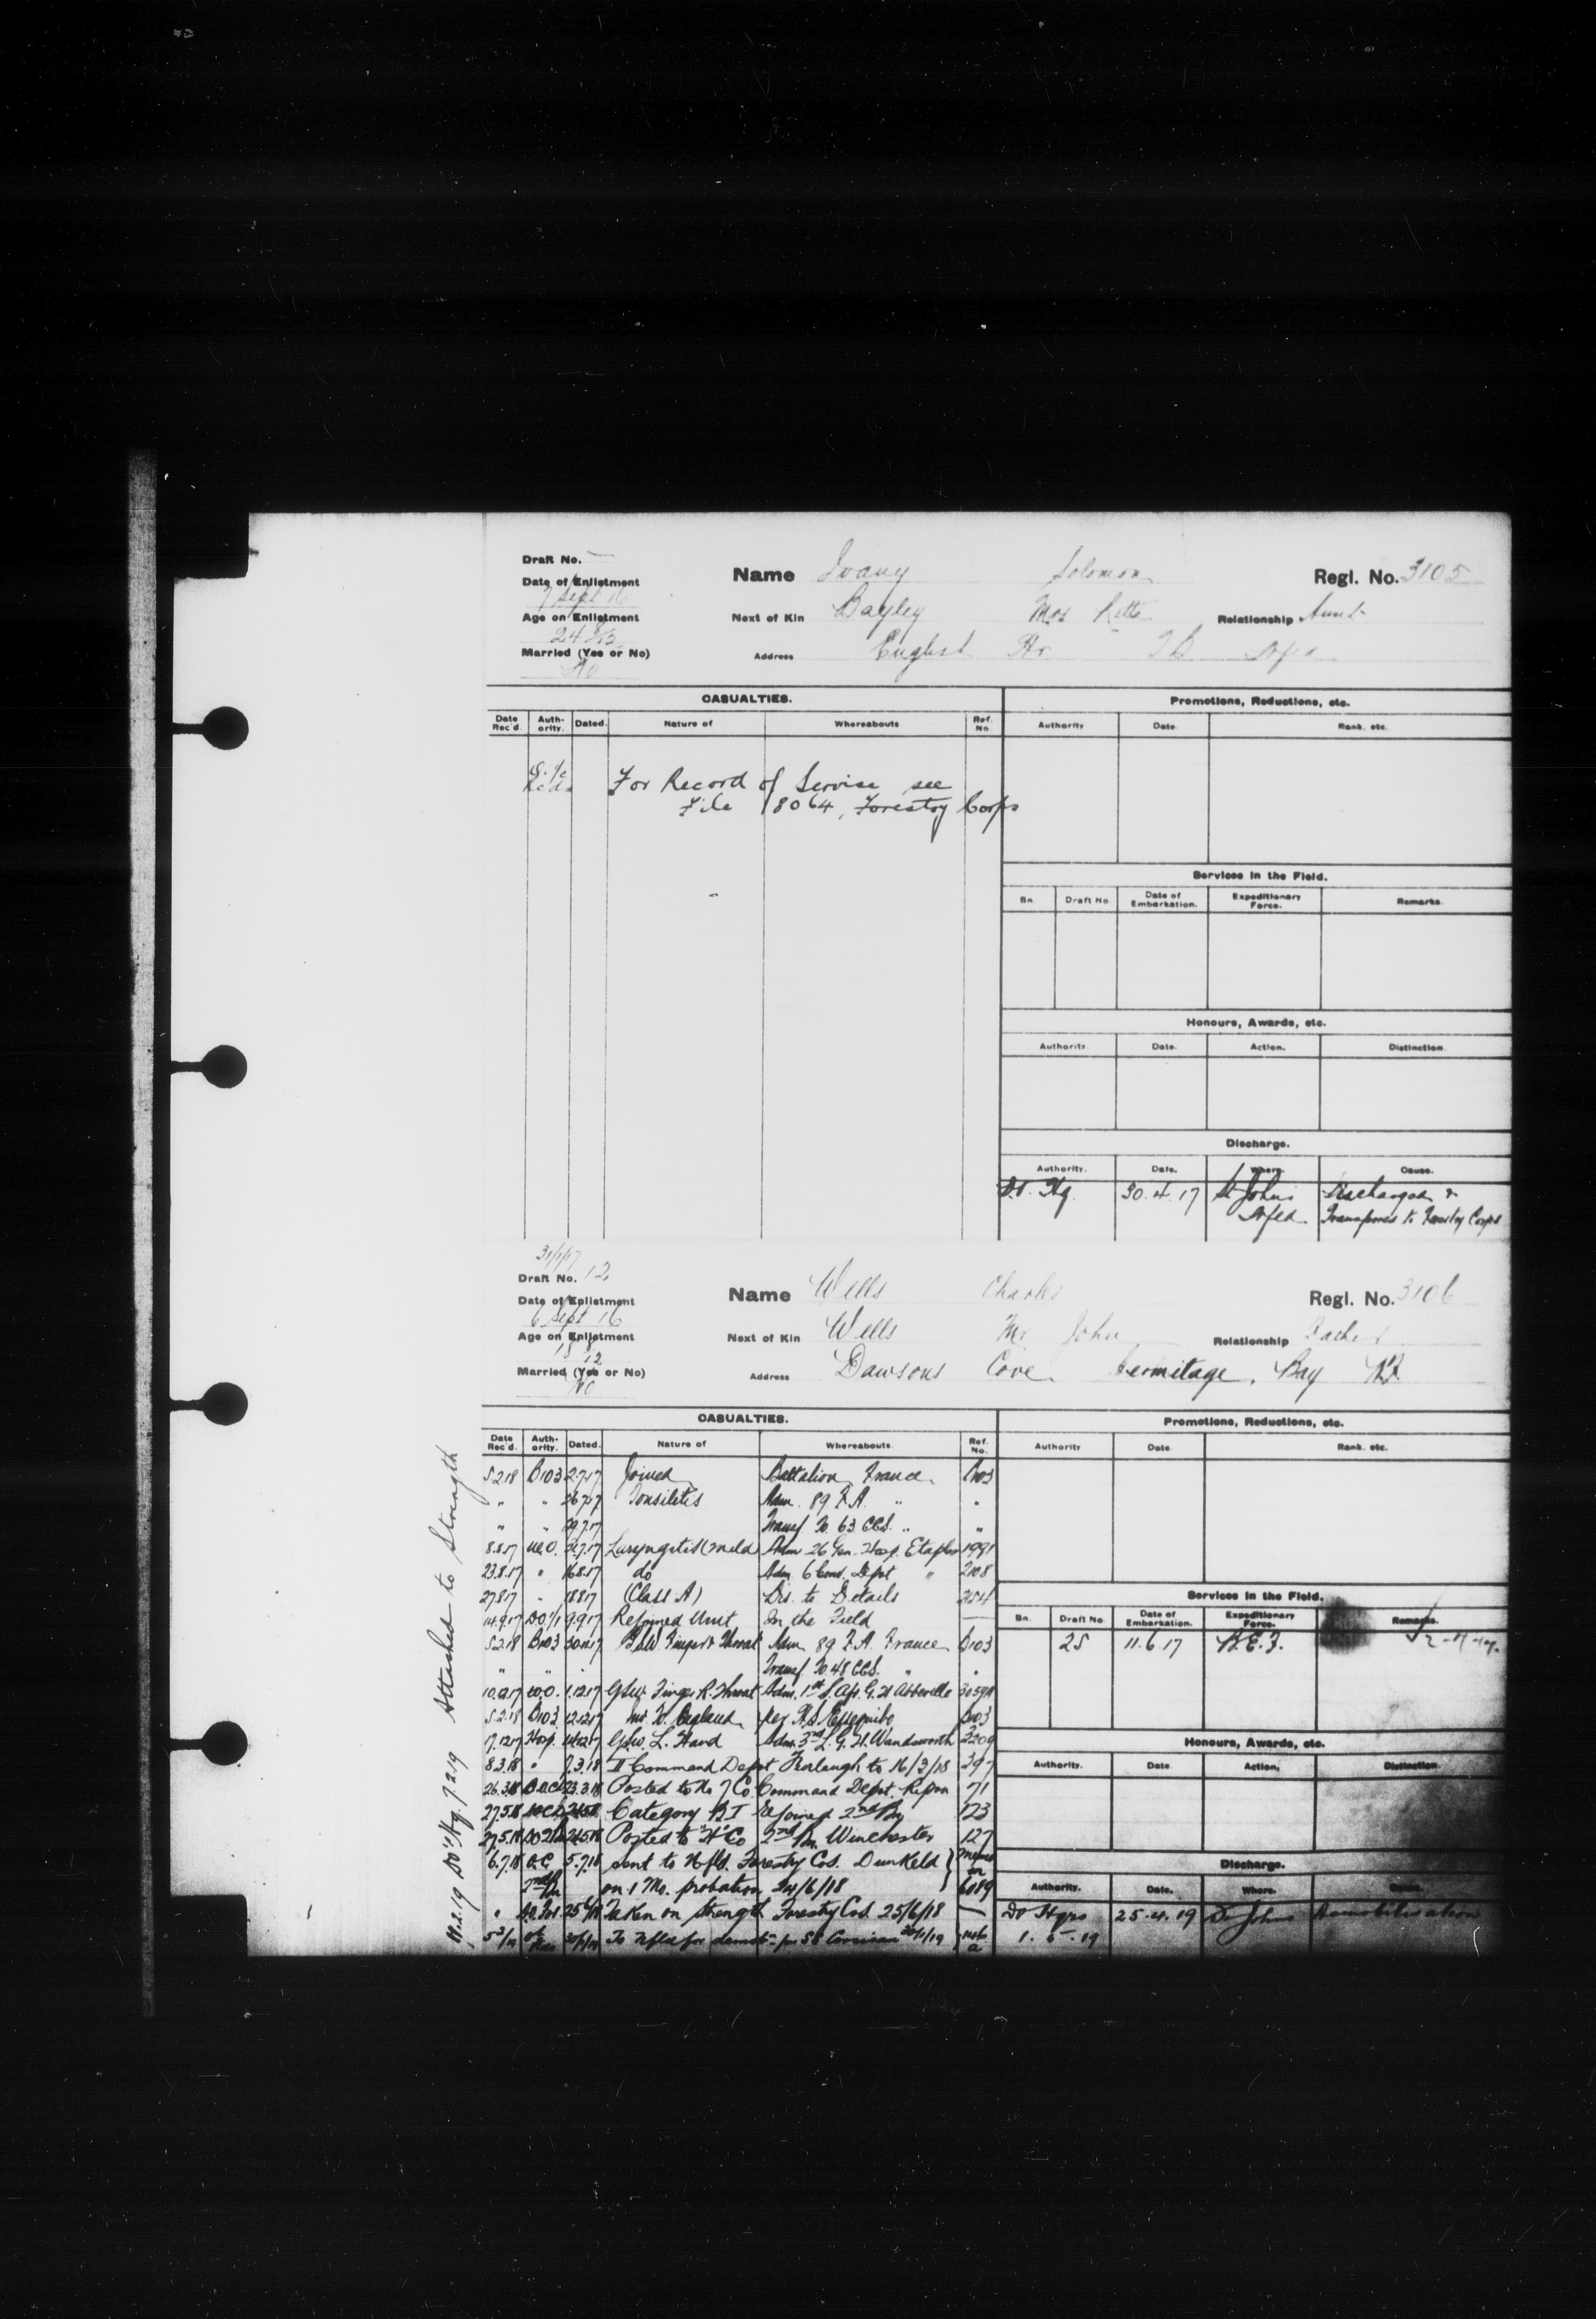 Draft No. —
Date of Enlistment
7 Sept 16
Age on Enlistment
24
Married (Yes or No)
No
Name Ivany Solomon Regl. No. 3105
Next of Kin Bayley Mrs Relationship Aunt
Address English Hr. T B Nfld
CASUALTIES.
Date Rec'd. Authority. Dated. Nature of Whereabouts Ref. No.
For Record of Service see
File 8064, Forestry Corps
Promotions, Reductions, etc.
Authority Date. Rank. etc.
Services in the Field.
Bn. Draft No Date of Embarkation. Expeditionary Force. Remarks.
Honours, Awards, etc.
Authority. Date. Action. Distinction.
Discharge.
Authority. Date. Where. Cause.
D.O. Hq. 30.4.17 St Johns Discharged &
Nfld. Transferred to Forestry Corps
31/1/17
Draft No. 12
Date of Enlistment
6 Sept 16
Age on Enlistment
18 8/12
Married (Yes or No)
No
Name Wells Charles Regl. No. 3106
Next of Kin Wells Mr John Relationship Father
Address Dawsons Cove. Hermitage. Bay N.F.
11.2.19 DO Hq. 7.2.19 Attached to Strength
CASUALTIES.
Date Rec'd. Authority. Dated. Nature of Whereabouts. Ref. No.
5.2.18 B103 2.7.17 Joined Battalion France. B103
" " 26.7.17 Tonsilitis Adm. 89 F.A. " "
" " 29.7.17 Transf. to 63 CCS. " "
8.8.17 W.O. Laryngitis (mild) Adm 26 Gen. Hosp. Etaples 1991
23.8.17 " 16.8.17 do Adm. 6 Conv. Depot " 2108
27.8.17 " 18.8.17 (Class A) Dis. to Details
14.9.17 9.9.17 Rejoined Unit In the Field —
5.2.18 B103 30.11.17 GSW Finger & Throat Adm 89 F.A. France B103
" " Transf. to 48 CCS. " "
W.O. 1.12.17 GSW Finger R. Throat Adm. 1st S. Afr. G. H Abbeville
5.2.18 B103 12.12.17 Inv. to England per H.S. Essequibo B103
17.12.17 Hosp. GSW. L. Hand Adm. 3rd L. G. H. Wandsworth 3209
8.3.18 " 7.3.18 II Command Depot Furlough to 16/3/18 397
26.3.18 23.3.18 Posted to No 7 Co. Command Depot. Ripon 71
27.5.18 Category B I Rejoined 2nd Bn 123
27.5.18 24.5.18 Posted to "H" Co 2nd Bn. Winchester 127
6.7.18 O.C. 2nd Bn 5.7.18 sent to Nfld. Forestry Cos. Dunkeld } memo on
on 1 Mo. probation 24/6/18 6089
" Taken on strength Forestry Cos. 25/6/18 —
To Nfld for demob. per SS Corsican 30/1/19
Promotions, Reductions, etc.
Authority Date. Rank. etc.
Services in the Field.
Bn. Draft No Date of Embarkation. Expeditionary Force. Remarks.
25 11.6.17 B.E.F.
Honours, Awards, etc.
Authority. Date. Action. Distinction
Discharge.
Authority. Date. Where. Cause.
DO Hqrs 25.4.19 St Johns Demobilisation